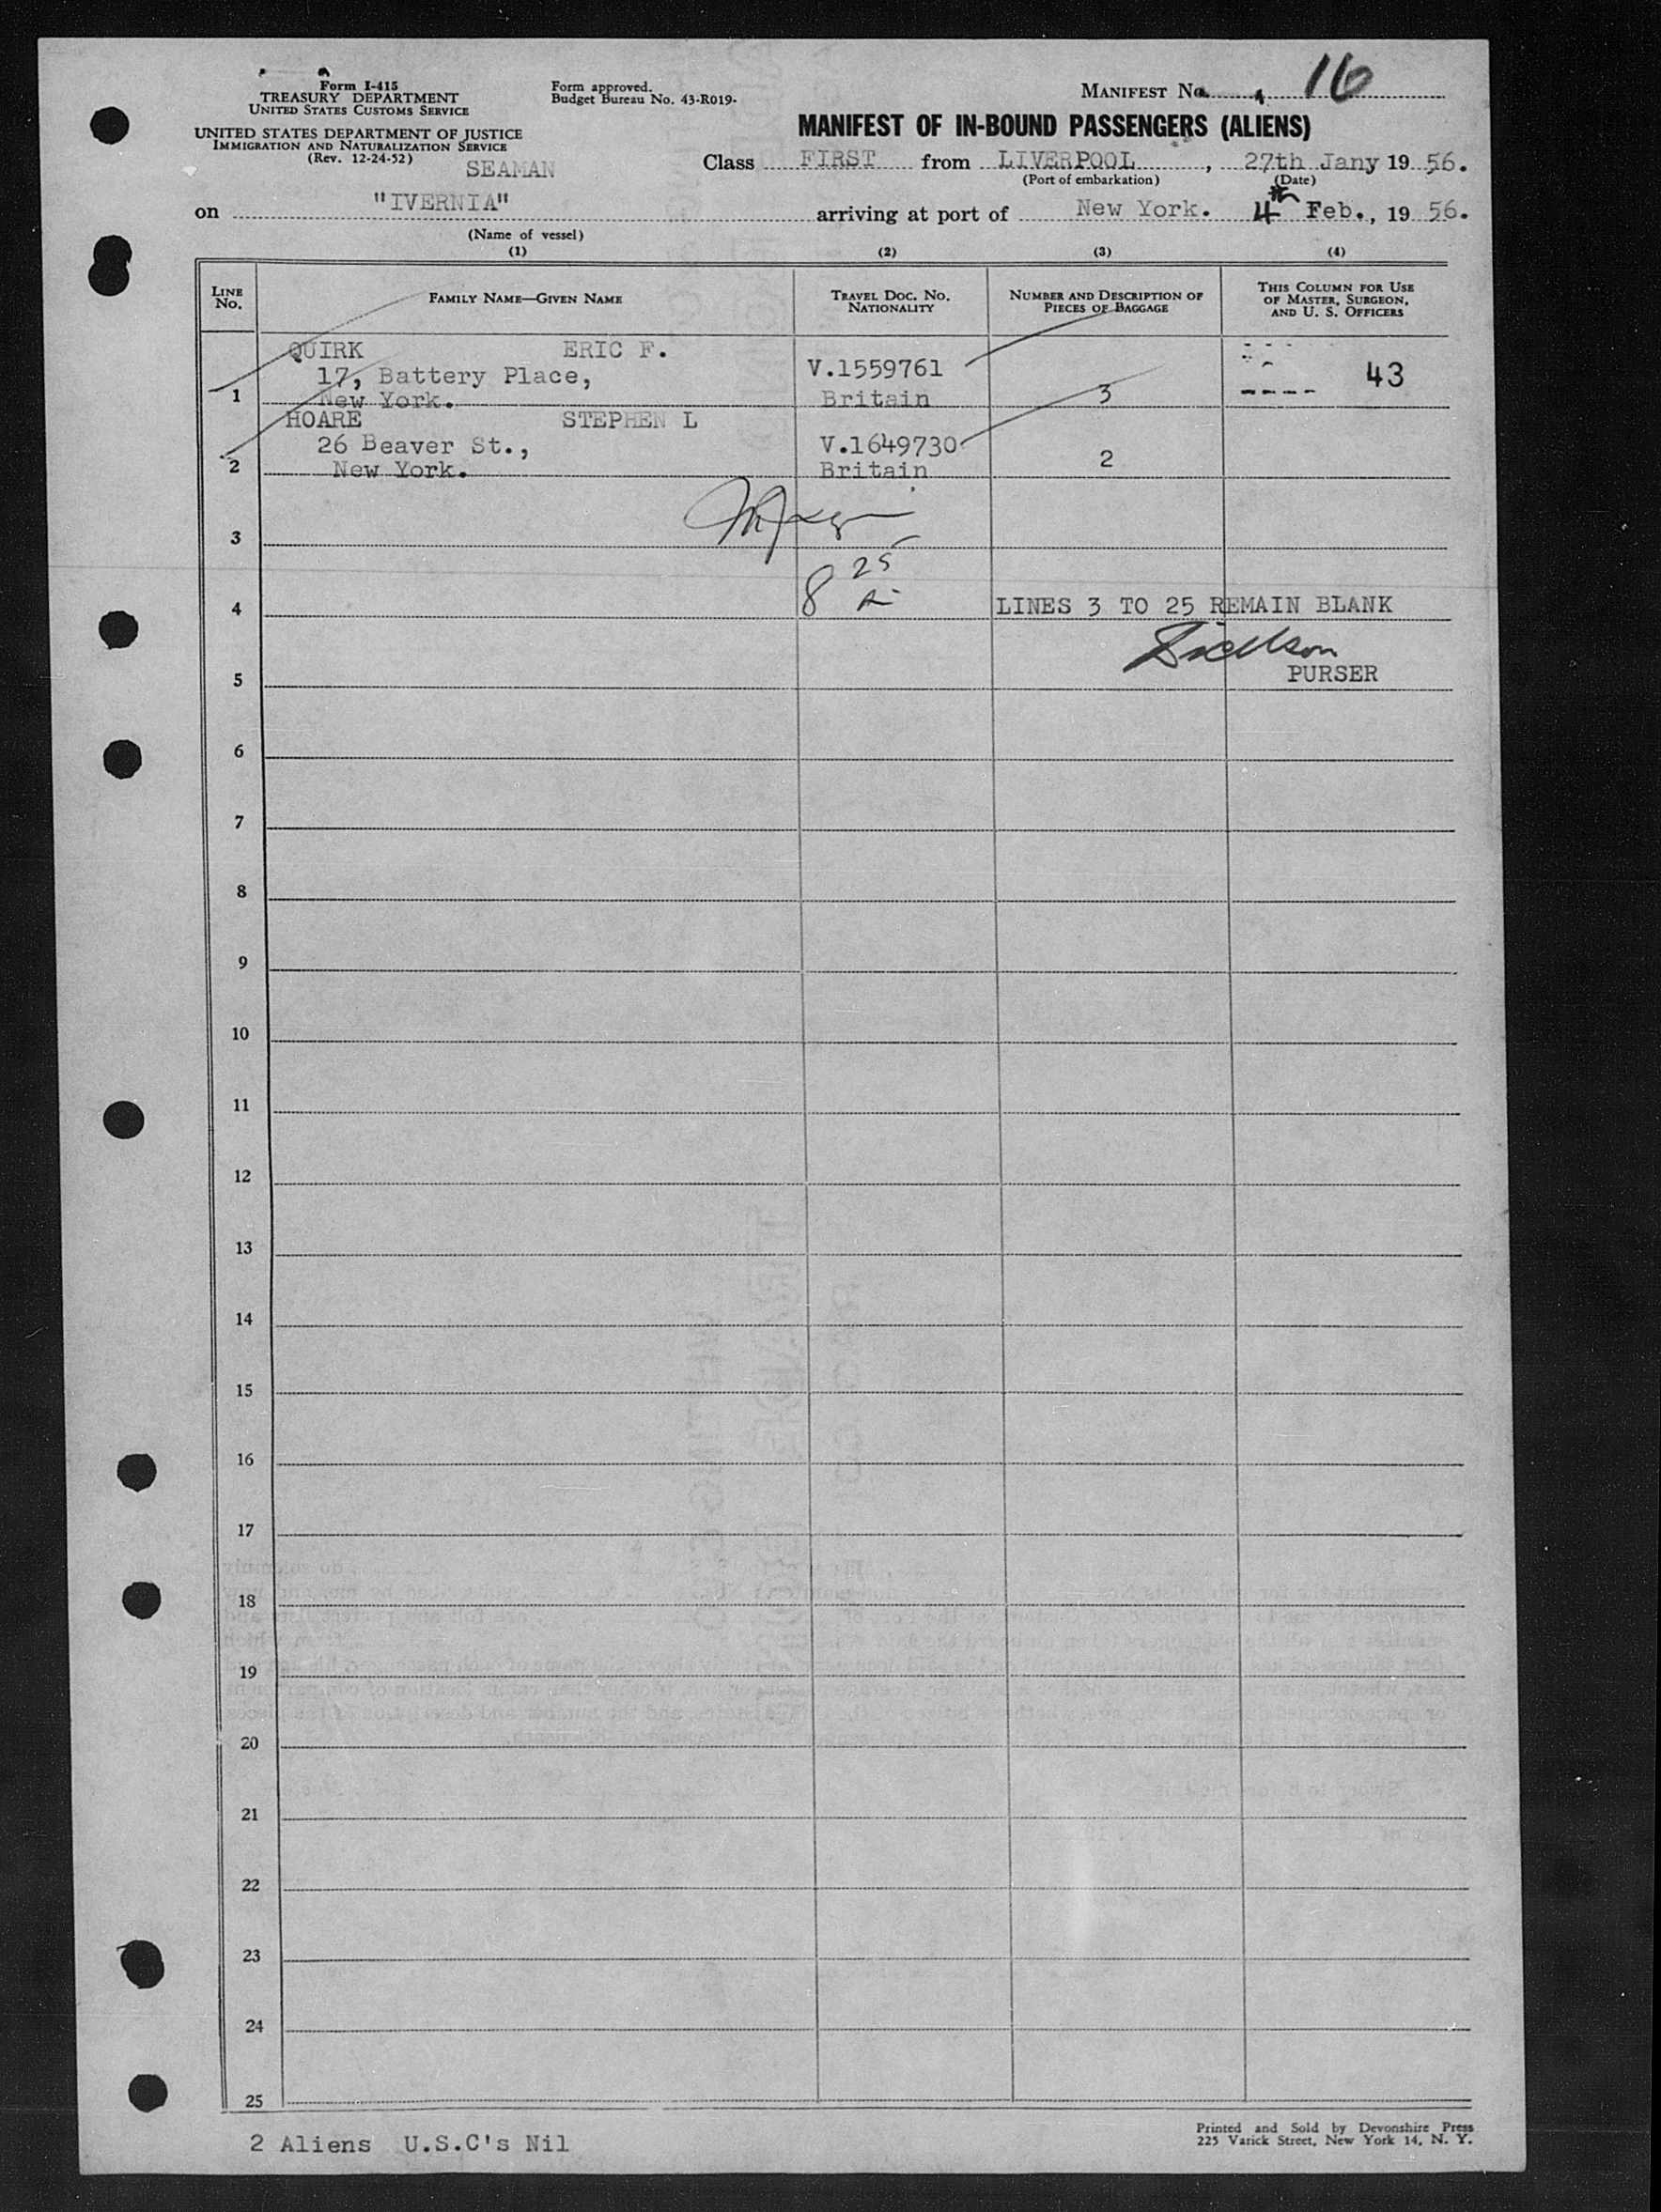 Form I-415
TREASURY DEPARTMENT
UNITED STATES CUSTOMS SERVICE
UNITED STATES DEPARTMENT OF JUSTICE
IMMIGRATION AND NATURALIZATION SERVICE
(Rev. 12-24-52)
Form approved.
Budget Bureau No. 43-R019.
MANIFEST No. 16
MANIFEST OF IN-BOUND PASSENGERS (ALIENS)
SEAMAN
Class FIRST from LIVERPOOL, 27th Jany 19 56.
(Port of embarkation) (Date)
on "IVERNIA" arriving at port of New York. 4th Feb., 19 56.
(Name of vessel)
(1) (2) (3) (4)
LINE No. FAMILY NAME—GIVEN NAME TRAVEL DOC. No. NATIONALITY NUMBER AND DESCRIPTION OF PIECES OF BAGGAGE THIS COLUMN FOR USE OF MASTER, SURGEON, AND U. S. OFFICERS
QUIRK ERIC F.
17, Battery Place, V.1559761 43
1 New York. Britain 3
HOARE STEPHEN L
26 Beaver St., V.1649730
2 New York. Britain 2
3
8 25
4 LINES 3 TO 25 REMAIN BLANK
Dickson
5 PURSER
6
7
8
9
10
11
12
13
14
15
16
17
18
19
20
21
22
23
24
25
2 Aliens U.S.C's Nil
Printed and Sold by Devonshire Press
225 Varick Street, New York 14, N. Y.